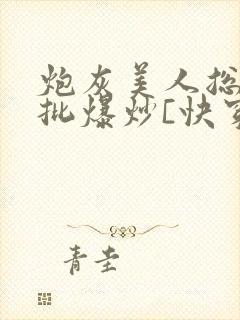 炮灰美人总
批爆炒[快穿
青圭